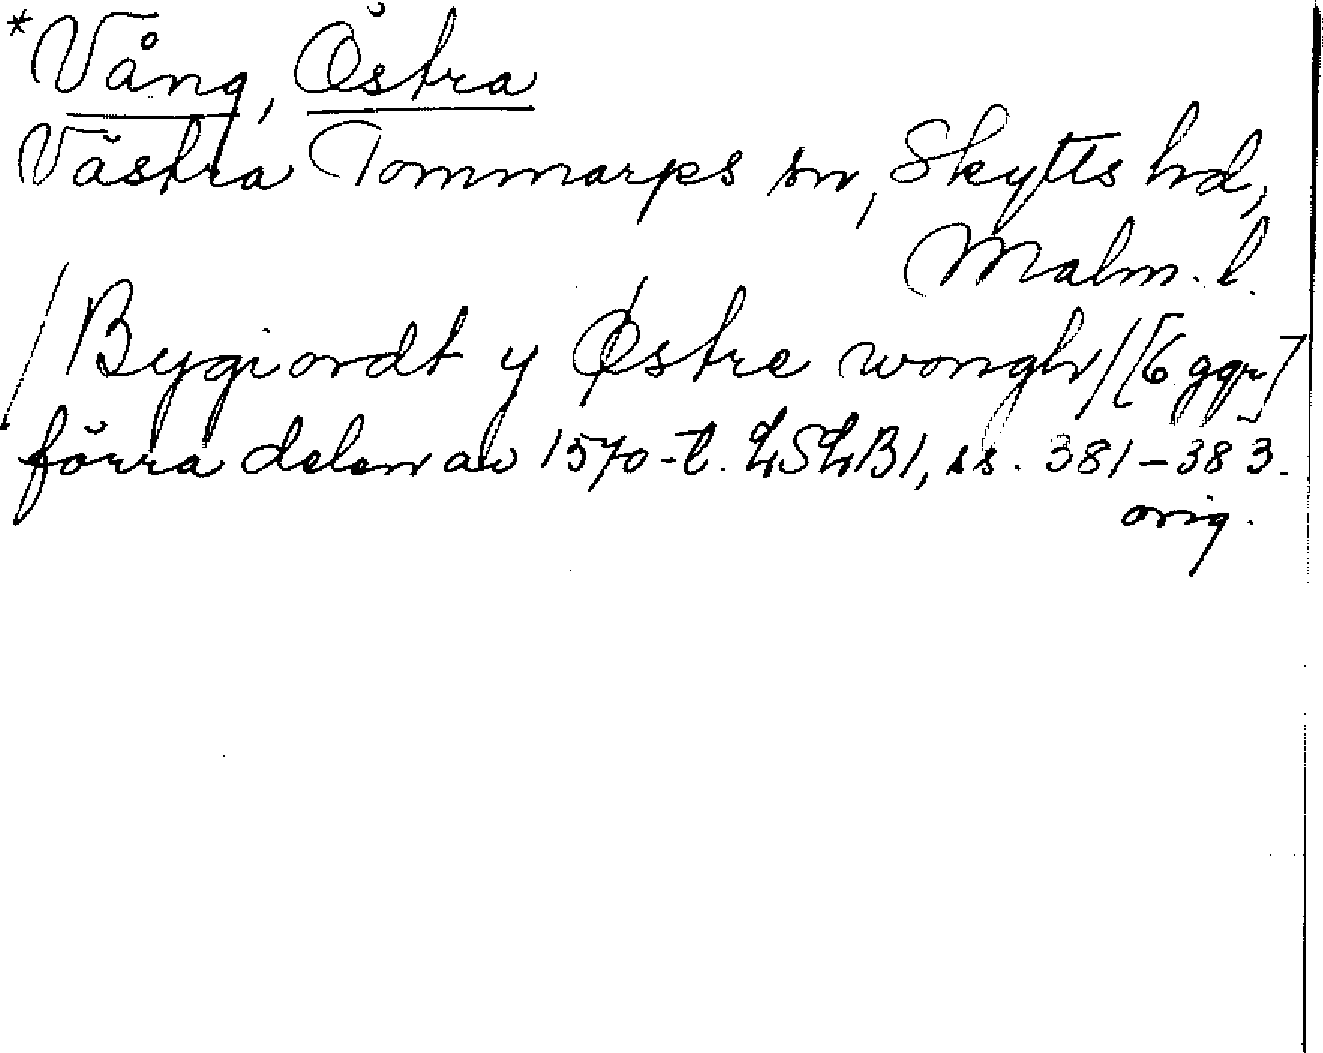 *Vång, Östra
Västra Tommarps sn, Skytts hd,
Malm. l.
/Bygiordt y Østre wongh/[6 ggr]
förra delen av 1570-t. LSLB1, ss. 381-383.
orig.